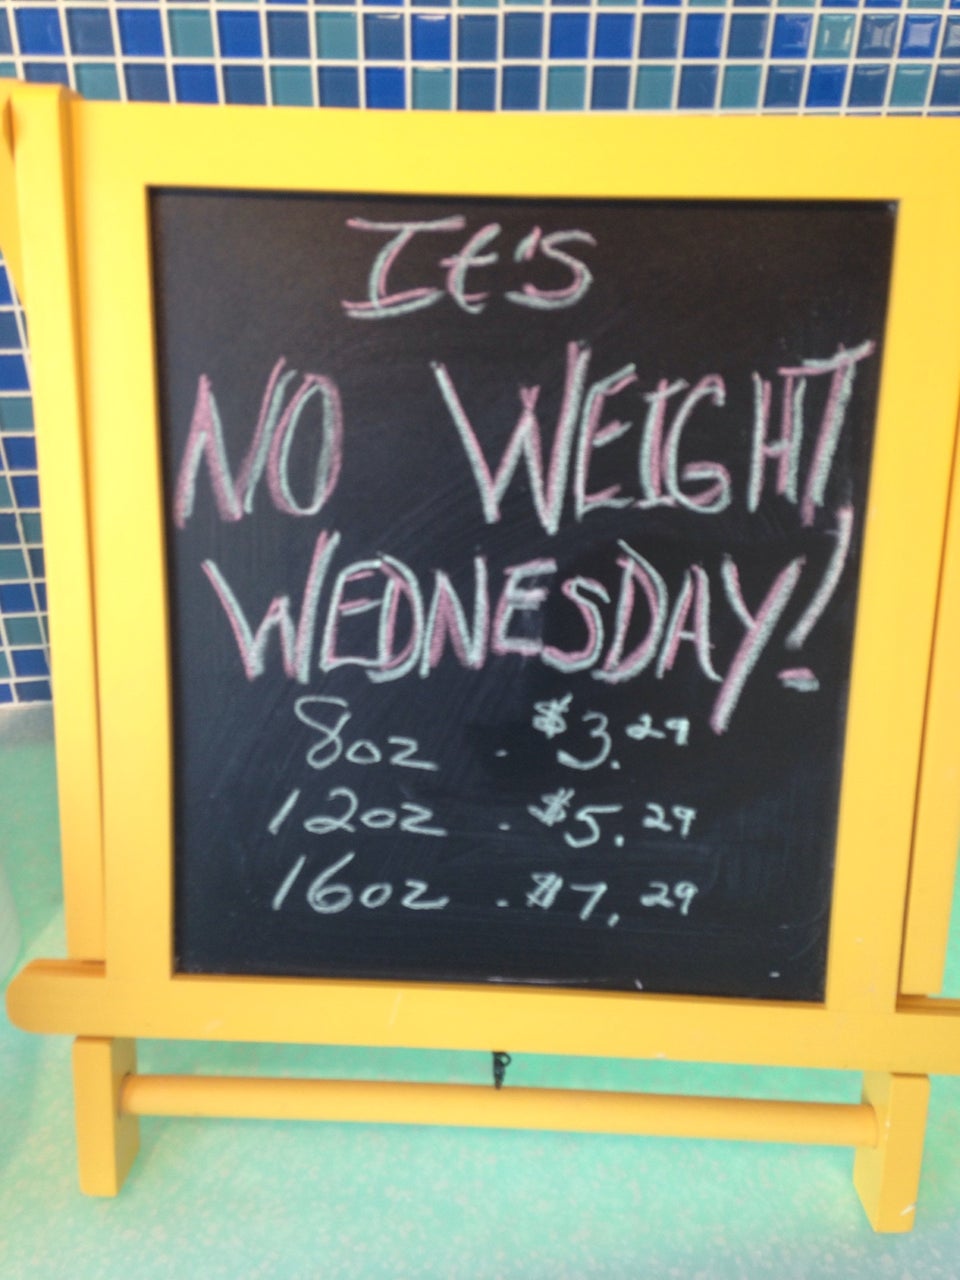 It's
NO WEIGHT
WEDNESDAY!
8oz . $3.29
12oz . $5.29
16oz . $7.29